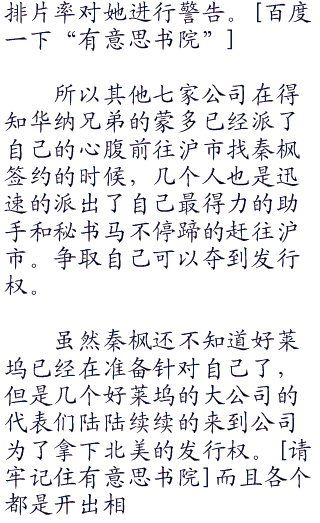 排片率对她进行警告。[百度
一下“有意思书院”]
所以其他七家公司在得
知华纳兄弟的蒙多已经派了
自己的心腹前往沪市找秦枫
签约的时候，几个人也是迅
速的派出了自己最得力的助
手和秘书马不停蹄的赶往沪
市。争取自己可以夺到发行
权。
虽然秦枫还不知道好莱
坞已经在准备针对自己了，
但是几个好莱坞的大公司的
代表们陆陆续续的来到公司
为了拿下北美的发行权。[请
牢记住有意思书院]而且各个
都是开出相